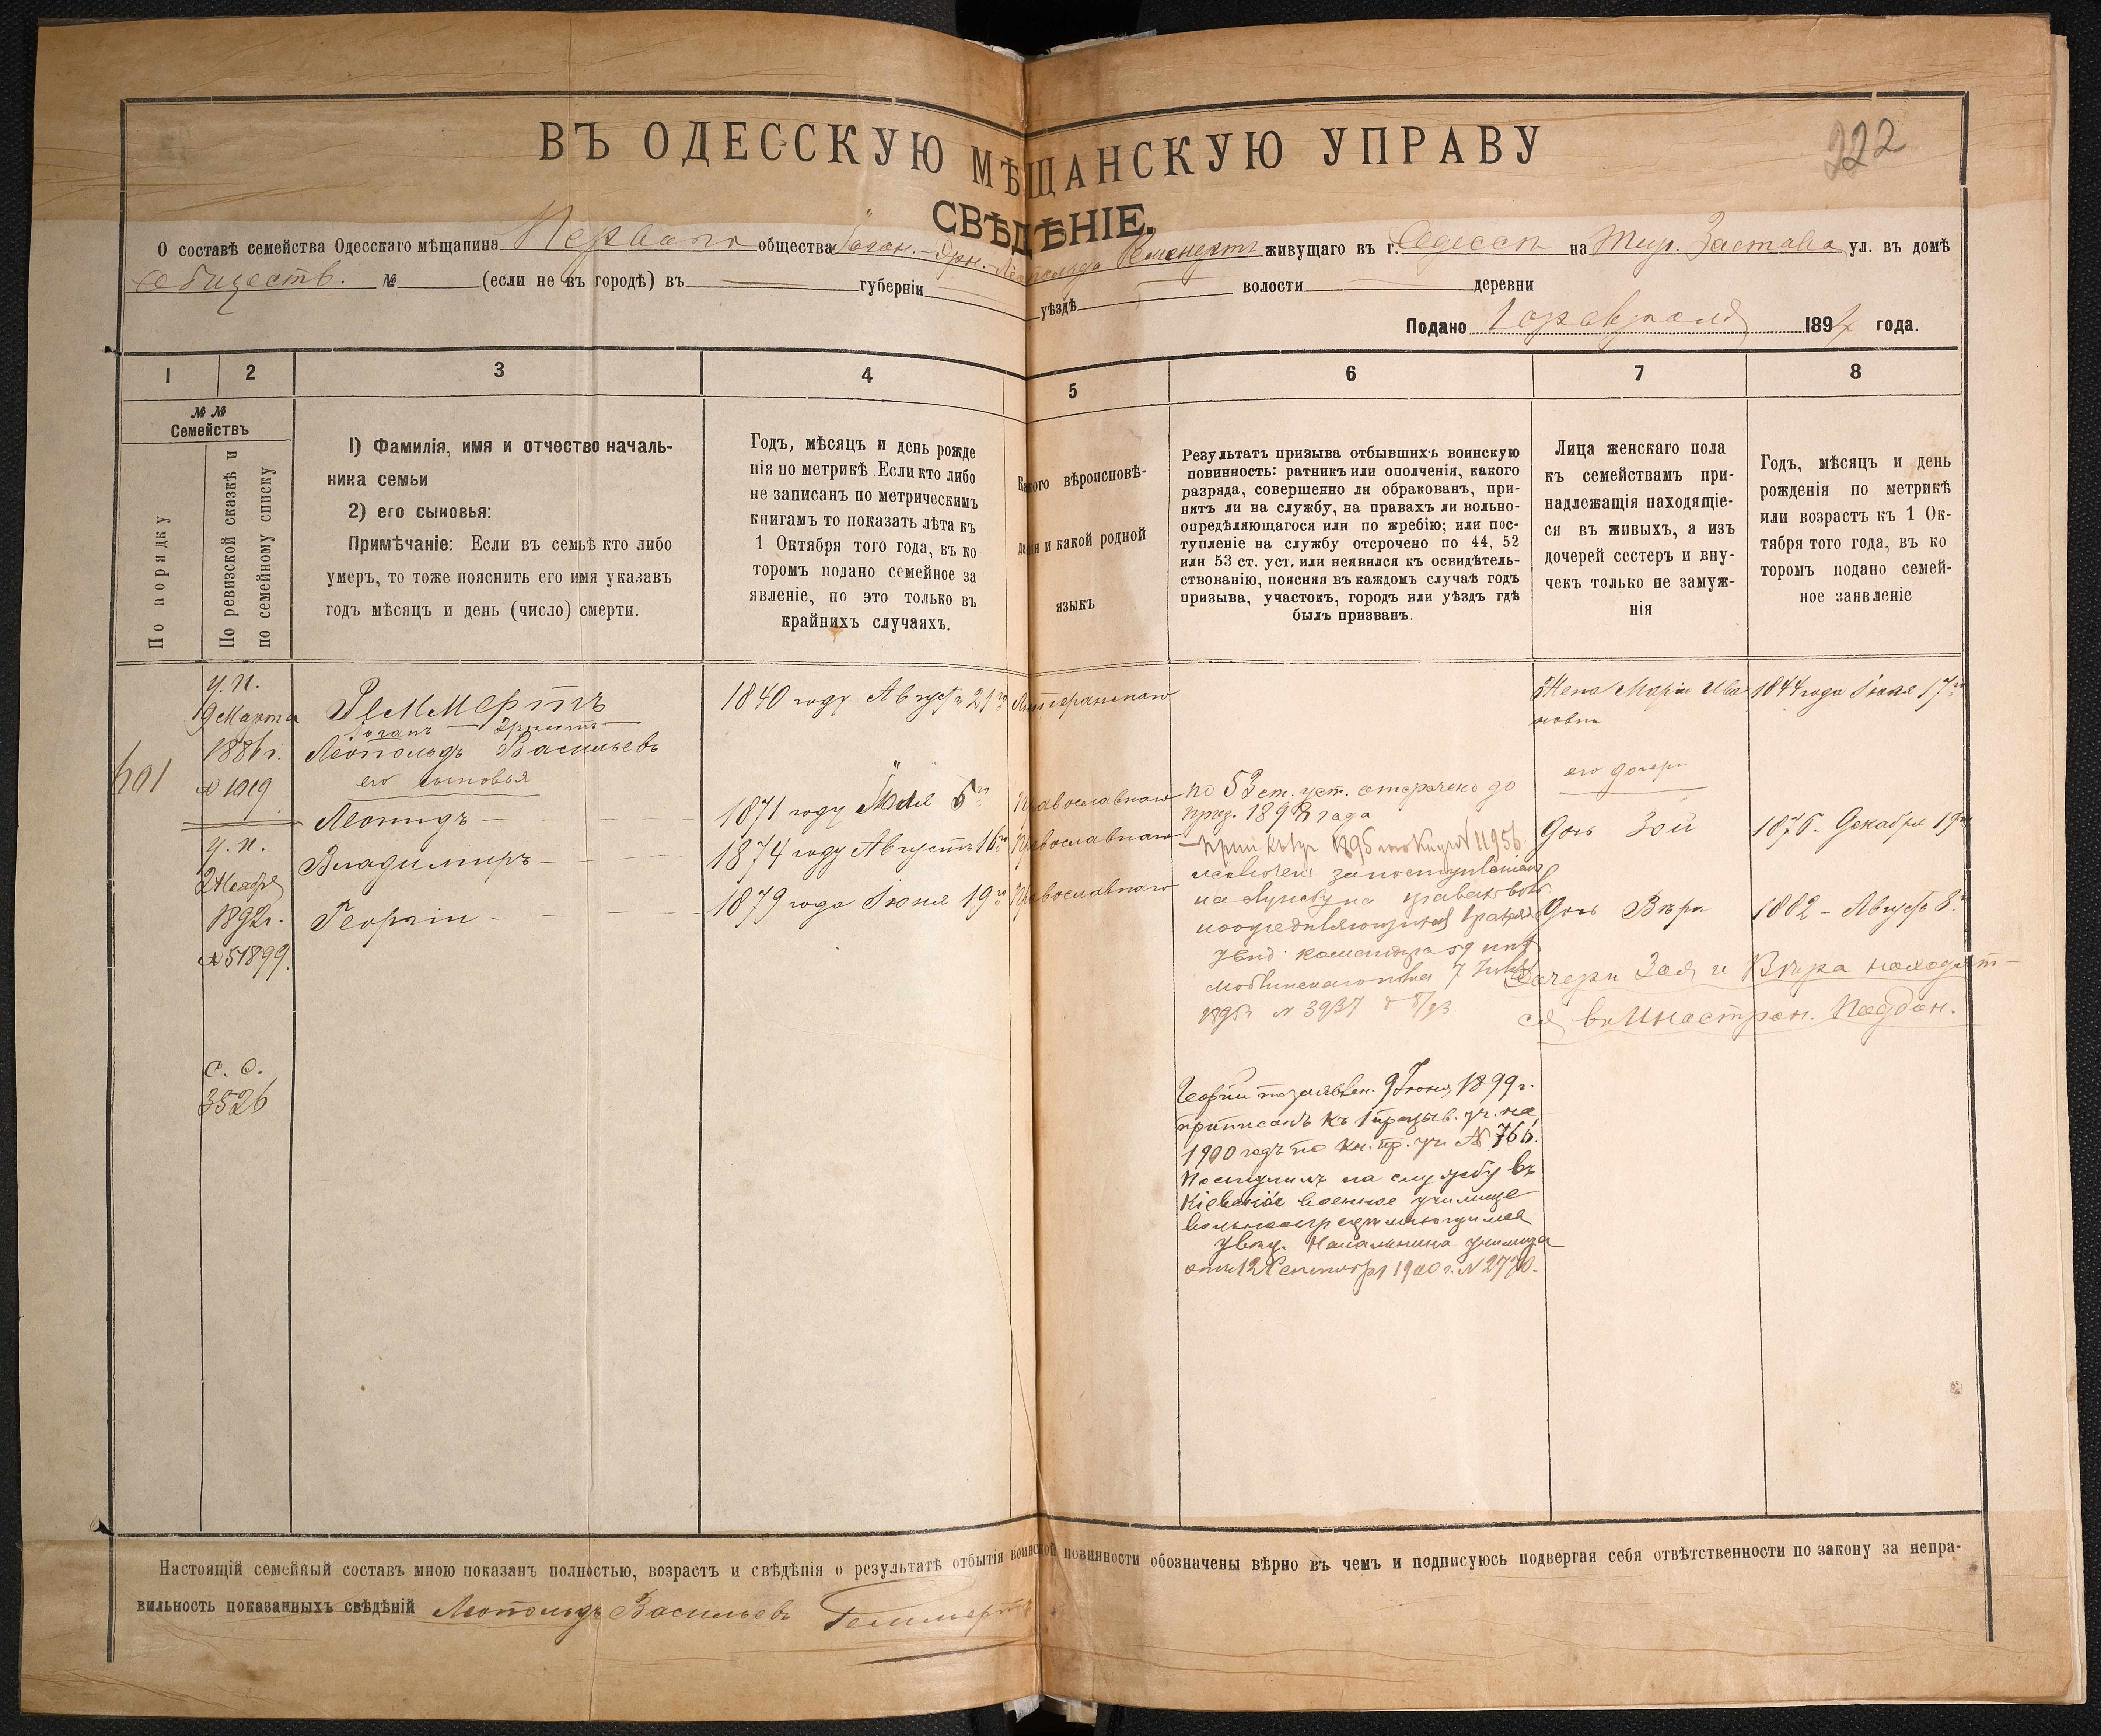 222
ВЪ ОДЕССКУЮ МѢЩАНСКУЮ УПРАВУ
СВѢДѢНІЕ.
О составѣ семейства Одесскаго мѣщанина Перваго общества Іоган.-Эрн.-Леопольда живущаго въ г. Одессѣ на Тир. Застава ул. въ домѣ
Обществ. № (если не въ городѣ) въ губерніи уѣздѣ волости деревни
Подано 1 февраля 1894 года.
1 2 3 4 5 6 7 8
№ №
Семействъ
По порядку
По ревизской сказкѣ и
по семейному списку
1) Фамилія, имя и отчество началь-
ника семьи
2) его сыновья:
Примѣчаніе: Если въ семьѣ кто либо
умеръ, то тоже пояснить его имя указавъ
годъ мѣсяцъ и день (число) смерти.
Годъ, мѣсяцъ и день рожде
нія по метрикѣ. Если кто либо
не записанъ по метрическимъ
книгамъ то показать лѣта къ
1 Октября того года, въ ко
торомъ подано семейное за
явленіе, но это только въ
крайнихъ случаяхъ.
Какого вѣроисповѣ-
данія и какой родной
языкъ
Результатъ призыва отбывшихъ воинскую
повинность: ратникъ или ополченія, какого
разряда, совершенно ли обракованъ, при-
нятъ ли на службу, на правахъ ли вольно-
опредѣляющагося или по жребію; или пос-
тупленіе на службу отсрочено по 44, 52
или 53 ст. уст. или неявился къ освидѣтель-
ствованію, поясняя въ каждомъ случаѣ годъ
призыва, участокъ, городъ или уѣздъ гдѣ
былъ призванъ.
Лица женскаго пола
къ семействамъ при-
надлежащія находящіе-
ся въ живыхъ, а изъ
дочерей сестеръ и вну-
чекъ только не замуж-
нія
Годъ, мѣсяцъ и день
рожденія по метрикѣ
или возрастъ къ 1 Ок-
тября того года, въ ко
торомъ подано семей-
ное заявленіе
601
у. п.
9 Марта
1886 г.
№ 1019
у. п.
1892 г.
№ 51899.
с. с.
3526
Реммертъ
Іоганъ — Эрнстъ —
Леопольдъ Васильевъ
его сыновья
Леонидъ
Владимиръ
Георгій
1840 году Августъ 21го Лютеранскаго
1871 году Юля 5го Православнаго
1874 году Августъ 16го Православнаго
1879 года Іюня 19го Православнаго
по 53 ст. уст. отсрочено до
приз. 1898 года
исключен за поступленіем
на службу на правах воль
ноопредѣляющагося
увѣд. командира 59 пѣх
полка 7 Іюля
1895 г № 3937
Георгій по заявлен. 9 Іюня 1899 г.
приписанъ къ 1 призыв. уч. на
1900 годъ по кн. пр. уч. № 766.
Поступилъ на службу въ
Кіевское военное училище
вольноопредѣляющимся
увѣд. Начальника училища
отъ 12 Сентября 1900 г. № 2770.
Жена Марія Ива
новна
его дочери
Дочь Зоя
Дочь Вѣра
1844 года Іюля 17го
1876. Декабря 19го
1882 - Августъ 8го
Дочери Зоя и Вѣра находят-
ся въ Иностран. Поддан.
Настоящій семейный составъ мною показанъ полностью, возрастъ и свѣдѣнія о результатѣ отбытія воинской повинности обозначены вѣрно въ чемъ и подписуюсь подвергая себя отвѣтственности по закону за непра-
вильность показанныхъ свѣдѣній Леопольдъ Васильевъ Реммертъ